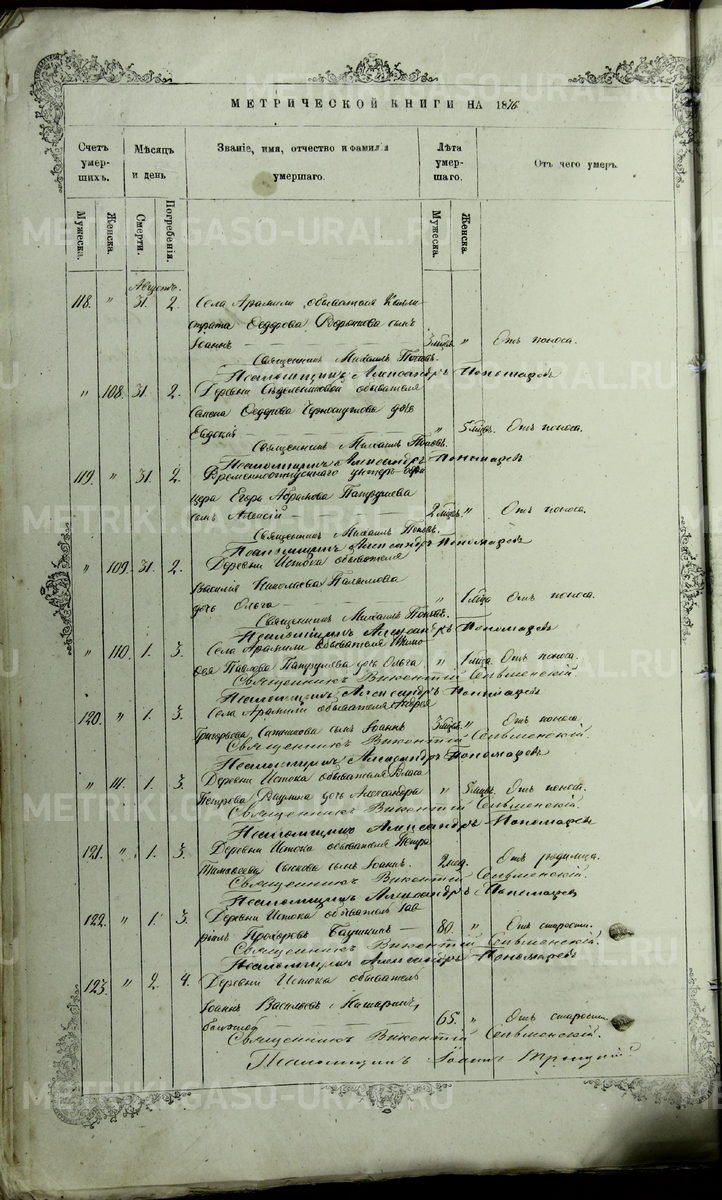 МЕТРИЧЕСКОЙ КНИГИ НА 1876
Счетъ умер-шихъ.
Мѣсяцъ и день
Званіе, имя, отчество и фамилія умершаго.
Лѣта умер-шаго.
Отъ чего умеръ.
Мужеска.
Женска.
Смерти.
Погребенія.
Мужеска.
Женска.
Августъ.
118. " 31. 2. Села Арамили обывателя
Ѳедорова сынъ
Іоаннъ 3 мѣсц. " Отъ поноса.
Священникъ Михаилъ Поповъ.
Псаломщикъ Александръ Пономаревъ
" 108. 31. 2. Деревни обывателя
Ѳедорова дочь
Евдокія " 5 мѣсц. Отъ поноса.
Священникъ Михаилъ Поповъ.
Псаломщикъ Александръ Пономаревъ
119. " 31. 2. Временноотпускнаго унтеръ-офи
цера Егора Абрамова Патрушева
сынъ Алексій 2 мѣсц. " Отъ поноса.
Священникъ Михаилъ Поповъ.
Псаломщикъ Александръ Пономаревъ
" 109. 31. 2. Деревни Истока обывателя
Василія Николаева
дочь Ольга " 1 мѣсц. Отъ поноса.
Священникъ Михаилъ Поповъ.
Псаломщикъ Александръ Пономаревъ
" 110. 1. 3. Села Арамили обывателя Тимо
ѳея Павлова Патрушева дочь Ольга " 1 мѣсц. Отъ поноса.
Священникъ Викентій
Псаломщикъ Александръ Пономаревъ
120. " 1. 3. Села Арамили обывателя Андрея
Григорьева сынъ Іоаннъ 3 мѣсц. " Отъ поноса.
Священникъ Викентій
Псаломщикъ Александръ Пономаревъ
" 111. 1. 3. Деревни Истока обывателя Власа
Петрова дочь Александра " 5 мѣсц. Отъ поноса.
Священникъ Викентій
Псаломщикъ Александръ Пономаревъ
121. " 1. 3. Деревни Истока обывателя Петра
Тимофеева сынъ Іоаннъ. 2 нед. Отъ родимца.
Священникъ Викентій
Псаломщикъ Александръ Пономаревъ
122. " 1. 3. Деревни Истока обыватель Гав
ріилъ Прохоровъ 80. " Отъ старости.
Священникъ Викентій
Псаломщикъ Александръ Пономаревъ
123. " 2. 4. Деревни Истока обыватель
Іоаннъ Васильевъ
65. " Отъ старости.
Священникъ Викентій
Псаломщикъ Іоаннъ Троицкій
METRIKI.GASO-URAL.RU